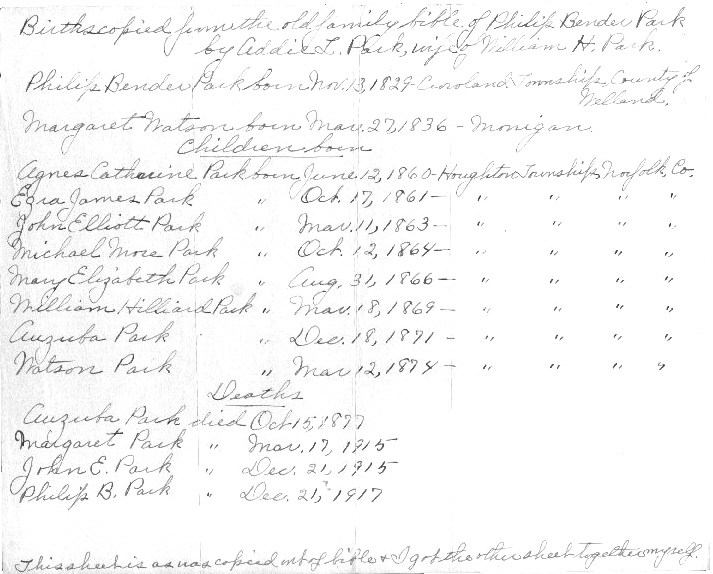 Births copied from the old family bible of Philip Bender Park
by Addie L. Park, wife of William H. Park.
Philip Bender Park born Nov. 13, 1829 - Crowland Township, County of
Welland.
Margaret Watson born Mar. 27, 1836 - Monigan
Children born
Agnes Catharine Park born June 12, 1860 - Houghton Township, Norfolk, Co.
Ezra James Park " Oct. 17, 1861 - " " " "
John Elliott Park " Mar. 11, 1863 - " " " "
Michael More Park " Oct. 12, 1864 - " " " "
Mary Elizabeth Park " Aug. 31, 1866 - " " " "
William Hilliard Park " Mar. 18, 1869 - " " " "
Auzuba Park " Dec. 18, 1871 - " " " "
Watson Park " Mar 12, 1874 - " " " "
Deaths
Auzuba Park died Oct 15, 1877
Margaret Park " Mar. 17, 1915
John E. Park " Dec. 21, 1915
Philip B. Park " Dec. 21, 1917
This sheet is as was copied out of bible & I got the other sheet together myself.